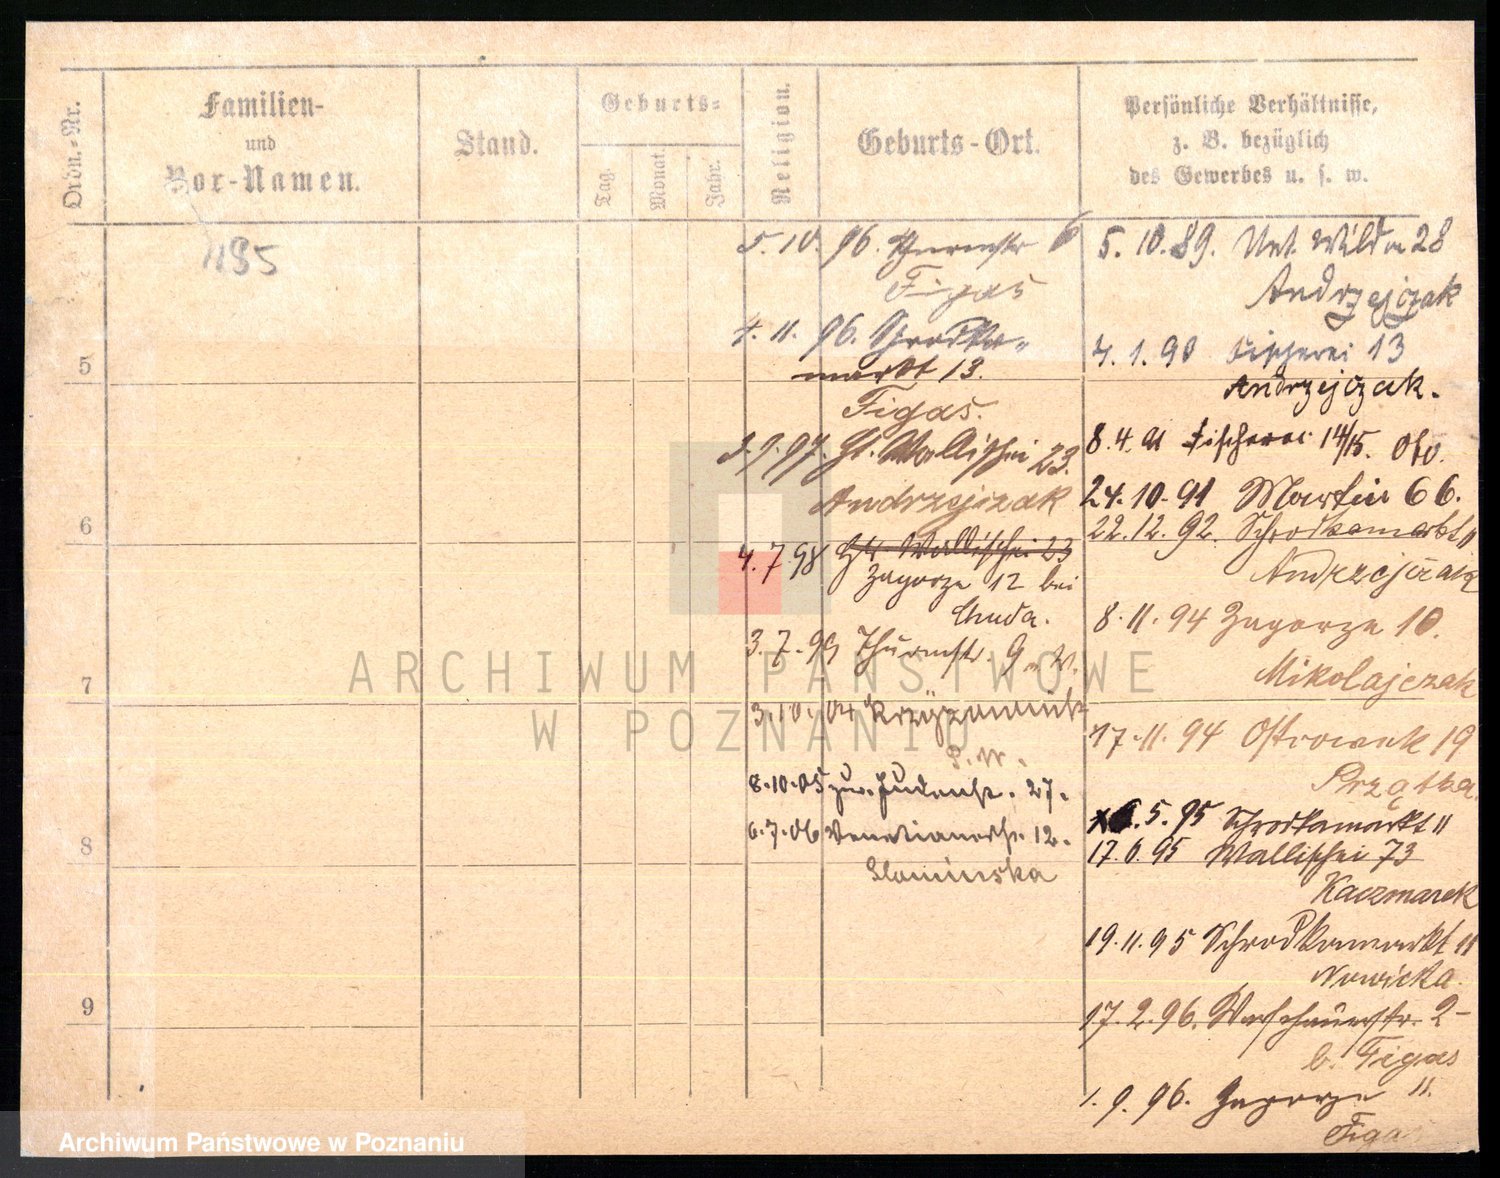 Ordn.-Nr.
Familien-
und
Vor-Namen.
Stand.
Geburts-
Tag.
Monat
Jahr.
Religion.
Geburts-Ort.
Persönliche Verhältnisse,
z. B. bezüglich
des Gewerbes u. s. w.
1185
5
6
7
8
9
5. 10. 96. Thurmstr 6
Figas
4. 11. 96. Schrodka-
markt 13.
Figas.
9. 97. Gr. Wallischei 23.
Andrzejczak
4. 7. 98 Wallischei 23
Zagorze 12 bei
Chuda.
3. 7. 99 Thurmstr. 9
3. 10. 04
8. 10. 05 Judenstr. 27.
6. 7. 06 Venetianerstr. 12.
Slaminska
5. 10. 89. Unt. Wilda 28
Andrzejczak
4. 1. 90 Fischerei 13
Andrzejczak.
8. 4. 91 Fischerei 14/15.
24. 10. 91 Martin 66.
22. 12. 92. Schrodkamarkt 11
Andrzejczak
8. 11. 94 Zagorze 10.
Mikolajczak
17. 11. 94 Ostrowek 19
Prządka.
5. 95 Schrodkamarkt 11
17. 6. 95 Wallischei 73
Kaczmarek
19. 11. 95 Schrodkamarkt 11
Nowicka.
17. 2. 96. Warschauerstr. 2-
b. Figas
1. 9. 96. Zagorze 11.
Figas
ARCHIWUM PAŃSTWOWE
W POZNANIU
Archiwum Państwowe w Poznaniu